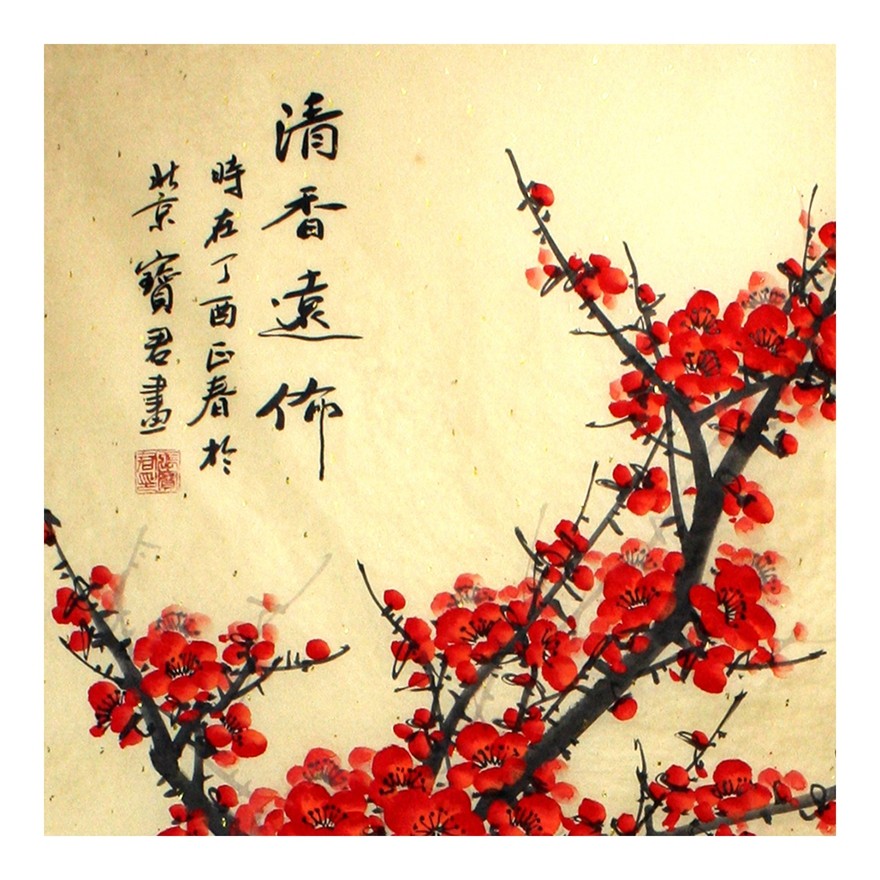 清香遠佈
時在丁酉正春於
北京寶君畫